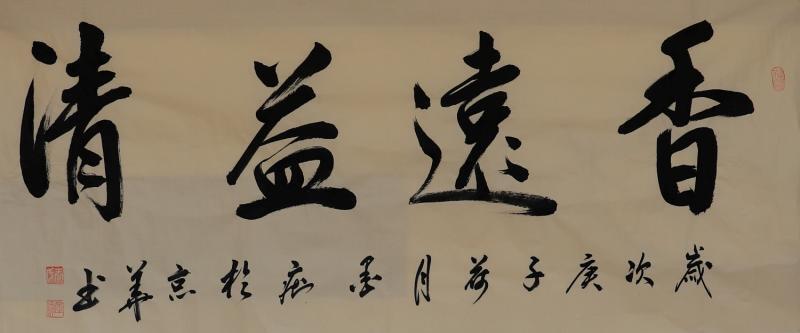 香遠益清
歲次庚子荷月墨痴於京華书